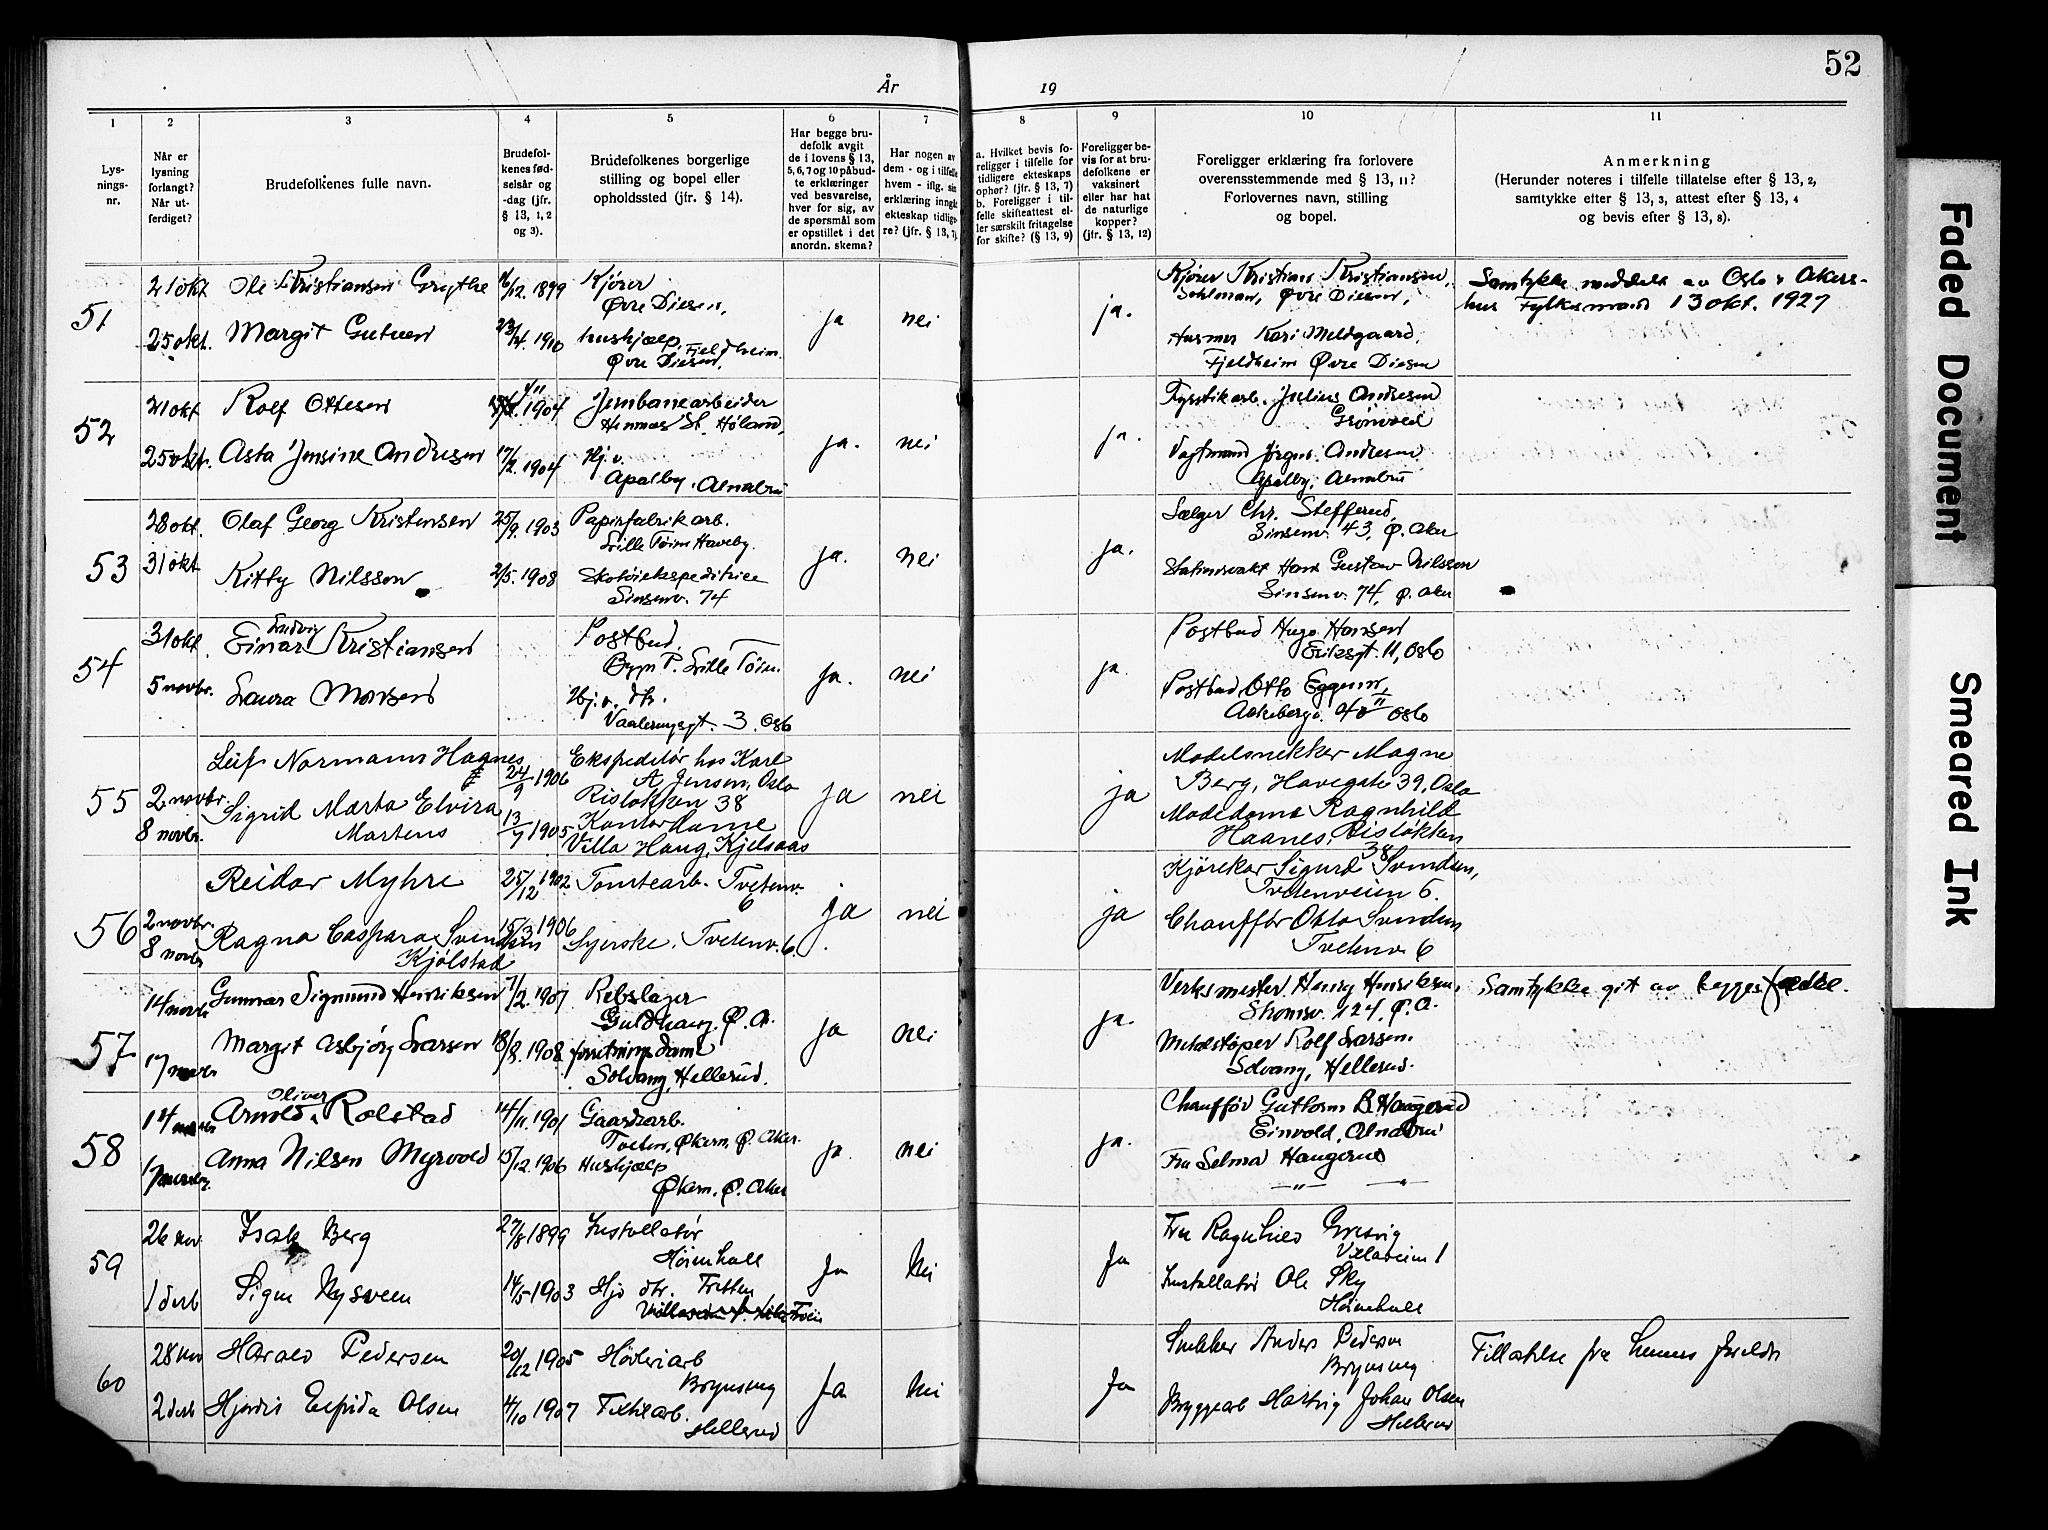 52
År 19
1
2
3
4
5
6
7
8
9
10
11
Lys-
nings-
nr.
Når er
lysning
forlangt?
Når ut-
ferdiget?
Brudefolkenes fulle navn.
Brudefol-
kenes fød-
selsår og
-dag (jfr.
§ 13, 1, 2
og 3).
Brudefolkenes borgerlige
stilling og bopel eller
opholdssted (jfr. § 14).
Har begge bru-
defolk avgit
de i lovens § 13,
5, 6, 7 og 10 påbud-
te erklæringer
ved besvarelse,
hver for sig, av
de spørsmål som
er opstillet i det
anordn. skema?
Har nogen av
dem - og i tilfelle
hvem - iflg. sin
erklæring inngått
ekteskap tidlige-
re? (jfr. § 13, 7)
a. Hvilket bevis fo-
religger i tilfelle for
tidligere ekteskaps
ophør? (jfr. § 13, 7)
b. Foreligger i til-
felle skifteattest el-
ler særskilt fritagelse
for skifte? (§ 13, 9)
Foreligger be-
vis for at bru-
defolkene er
vaksinert
eller har hat
de naturlige
kopper?
(jfr. § 13, 12)
Foreligger erklæring fra forlovere
overensstemmende med § 13, 11?
Forlovernes navn, stilling
og bopel.
Anmerkning
(Herunder noteres i tilfelle tillatelse efter § 13, 2,
samtykke efter § 13, 3, attest efter § 13, 4
og bevis efter § 13, 8).
51
21 okt Ole Kristiansen 16/12. 1899 Kjører
Øvre Diesen,
25 okt. Margit 23/4. 1910 hushjælp, Fjeldheim
Øvre Diesen,
ja nei ja.
Kjører Kristian Kristiansen,
Øvre Diesen,
Kari Meldgaard,
Fjeldheim Øvre Diesen
Samtykke meddelt av Oslo & Akers-
hus Fylkesmand 13 okt. 1927
52
21 okt Rolf Ottesen 1904 Jernbanearbeider
St. Høland,
25 okt. Asta Jensine Andresen 17/2. 1904 Hj. v.
Apalby, Alnabru
ja. nei ja.
Julius Andresen
Grønvold
Jørgen Andresen
Apalby, Alnabru
53
28 okt. Olaf Georg Kristensen 25/9. 1903 Papirfabrikarb.
Lille Tøien Haveby.
31 okt Kitty Nilsson 2/5. 1908 Skotøiekspeditrice
Sinsenv. 74
ja. nei ja.
Sælger Chr. Stefferud,
Sinsenv. 43, Ø. Aker
Stationsvakt Hans Gustav Nilsson
Sinsenv. 74, Ø. Aker
54
31 okt. Einar Ludvig Kristiansen Postbud,
Lille Tøien.
5 novbr. Laura Monsen Hj. v. dtr.
Vaalerenggt. 3. Oslo
ja. nei ja.
Postbud Hugo Hansen
Eriksgt. 11, Oslo
Postbud Otto Eggum,
Aakebergv. 40 II Oslo
55
Leif Normann Hagnes 24/9 1906 Ekspeditør hos Karl
A. Jensen, Oslo
Risløkken 38
2 novbr. Sigrid Marta Elvira 13/7 1905 Kontordame
8 novbr. Martens Villa Haug, Kjelsaas
ja nei ja
Modelsnekker Magne
Berg, Havegate 39, Oslo
Modedame Ragnhild
Haanes, Risløkken
38
56
Reidar Myhre 25/12 1902 Tomtearb. Tvetenv.
6
2 novbr. Ragna Caspara Svendsen 15/3 1906 Syerske, Tvetenv. 6.
8 novbr Kjølstad
ja nei ja
Kjørekar Sigurd Svendsen,
Tvetenveien 6.
Chauffør Otto Svendsen
Tvetenv. 6
57
14 novbr Gunnar Sigmund Henriksen 7/2. 1907 Rebslager
Guldhaug, Ø. A.
17 novbr Margit Asbjørg Larsen 18/8. 1908 forretningsdame
Solvang, Hellerud.
ja nei ja.
Verksmester Henry Henriksen,
Strømsv. 124, Ø. A.
Metalstøper Rolf Larsen.
Solvang, Hellerud.
Samtykke git av begges fædre.
58
14 novbr Arnold Oliver Rolstad 14/11. 1901 Gaardsarb.
Tveten, Økern, Ø. Aker.
17 novbr. Anna Nilsen Myrvold 15/12. 1906 Hushjælp
Økern, Ø. Aker
ja. nei ja.
Chauffør Guttorm B. Haugerud
Einvold, Alnabru
Fru Selma Haugerud
—"— —"—
59
26 nov Isak Berg 27/8 1899 Installatør
Høienhall
1 desb Signe Nysveen 14/5 1903 Hjv dtr. Fritten
ja nei ja
Fru Ragnhild Gresvig
1
Installatør Ole Sky
Høienhall
60
28 nov Harald Pedersen 20/12 1905 Høvleriarb
Brynseng
2 desb Hjørdis Elfrida Olsen 4/10 1907 Fabrikarb.
Hellerud
ja nei ja
Snekker Anders Pedersen
Brynseng
Bryggearb Hartvig Johan Olsen
Hellerud
Tillatelse fra hennes foreldre
Faded Document
Smeared Ink